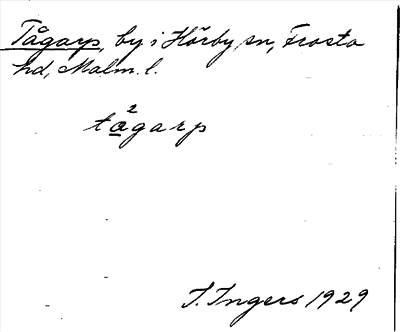 Tågarp, by i Hörby sn, Frosta
hd, Malm. l.
2
tågarp
I. Ingers 1929